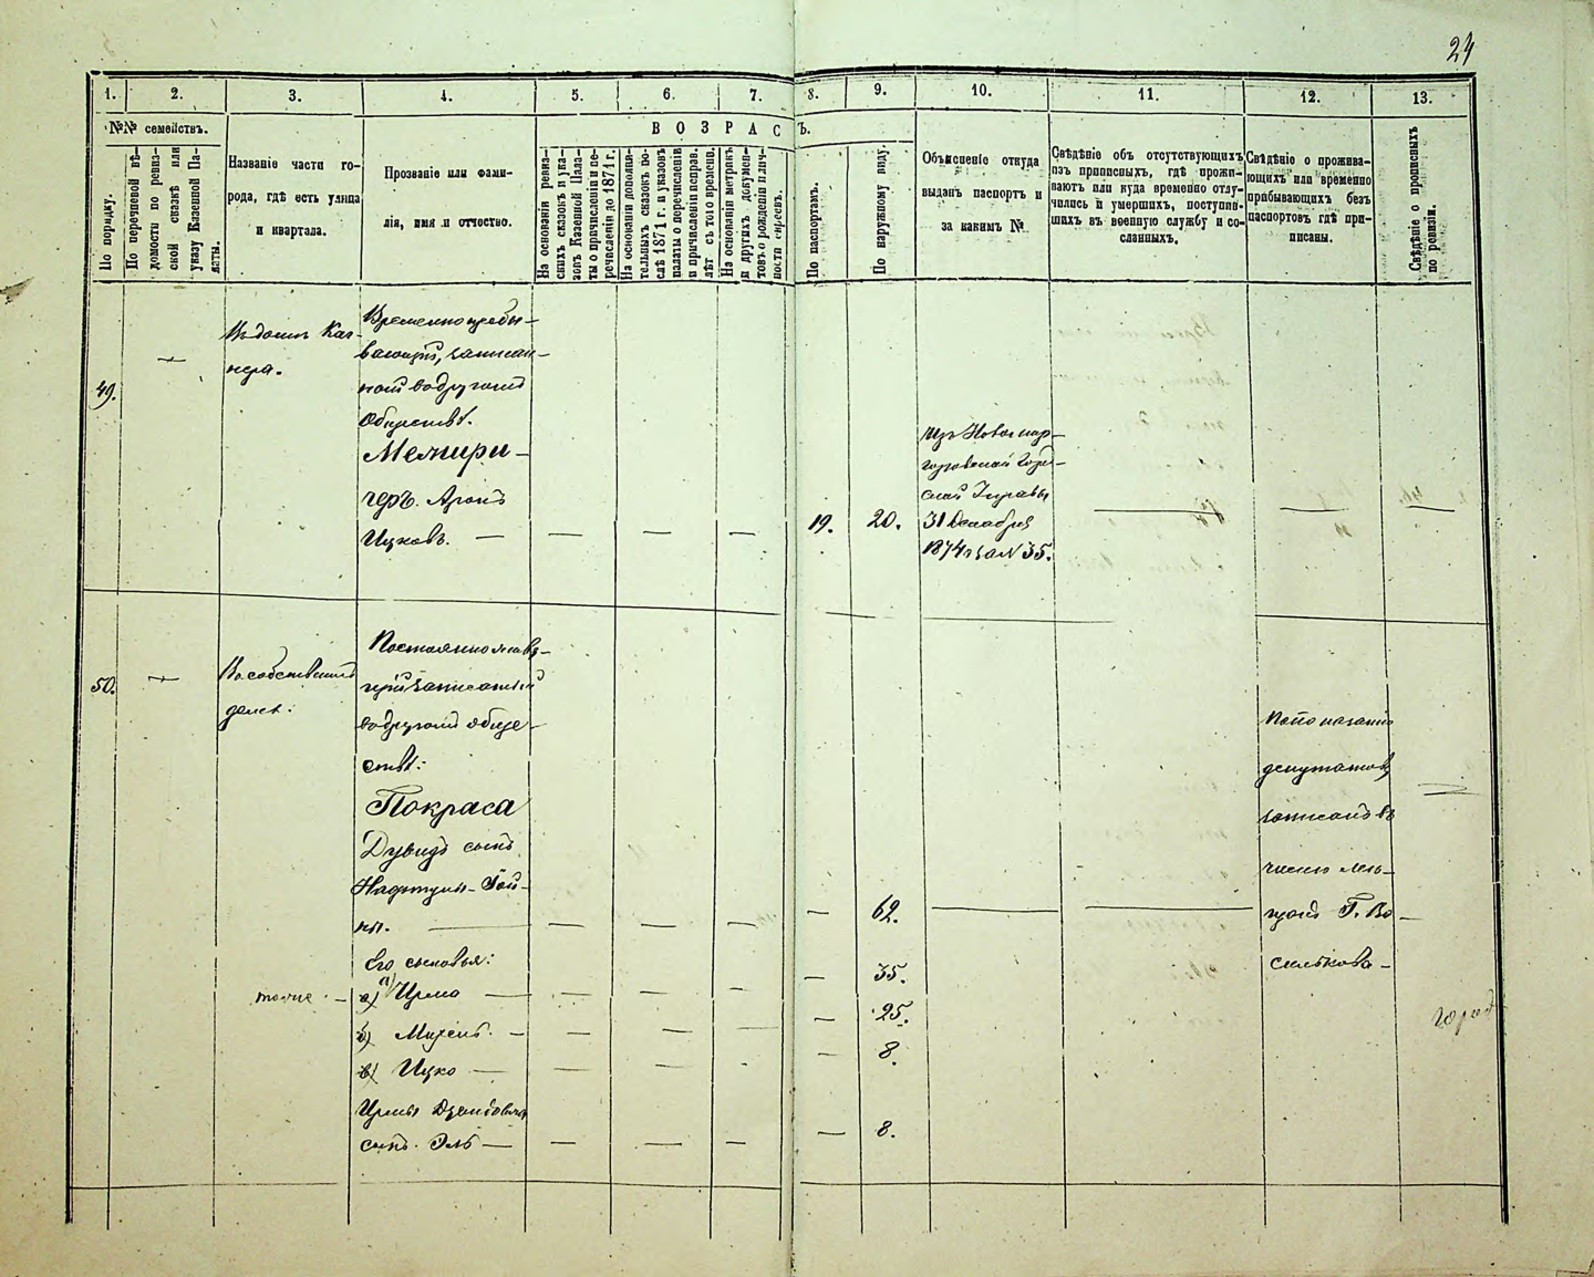 24
1. 2. 3. 4. 5. 6. 7. 8. 9. 10. 11. 12. 13.
№№ семействъ.
По порядку.
По перечневой вѣ-
домости по ревиз-
ской сказкѣ или
указу Казенной Па-
латы.
Названіе части го-
рода, гдѣ есть улица
и квартала.
Прозваніе или фами-
лія, имя и отчество.
ВОЗРАСТЪ.
На основаніи ревиз-
скихъ сказокъ и ука-
зовъ Казенной Пала-
ты о причисленіи и пе-
речисленіи до 1871 г.
На основаніи дополни-
тельныхъ сказокъ по-
слѣ 1871 г. и указовъ
палаты о перечисленіи
и причисленіи исправ.
лѣт съ того времени.
На основаніи метрикъ
и других докумен-
товъ о рожденіи и лич-
ности евреевъ.
По паспортамъ.
По наружному виду.
Объясненіе откуда
выданъ паспортъ и
за какимъ №
Свѣдѣніе объ отсутствующихъ
изъ приписныхъ, гдѣ прожи-
ваютъ или куда временно отлу-
чились и умершихъ, поступив-
шихъ въ военную службу и со-
сланныхъ.
Свѣдѣніе о прожива-
ющихъ или временно
прибывающихъ безъ
паспортовъ гдѣ при-
писаны.
Свѣдѣніе о прописныхъ
по ревизіи.
49.
Въ домѣ Каг-
нера.
Временно пребы-
вающій, записан-
ной въ другомъ
Обществѣ.
Межири-
черъ. Аронъ
Ицковъ.
19.
20.
Изъ Новомир-
городской Город-
ской Управы
31 Декабря
1874 г за N 35.
50.
Въ собственномъ
домѣ.
Постоянно живу-
щій записанный
въ другомъ обще-
ствѣ:
Покраса
Дувидъ сынъ
Нафтулы-Гой-
ны.
62.
По показанію
депутатовъ
записанъ въ
число мѣ-
щанъ Г. Ва-
силькова
Его сыновья:
тоже
а) Ирма
35.
б) Михель
25.
в) Ицко
8.
Ирмы Дувидовича
сынъ Эль
8.